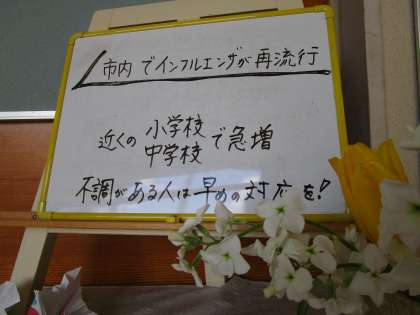 市内でインフルエンザが再流行
近くの小学校
中学校で急増
不調がある人は早めの対応を!